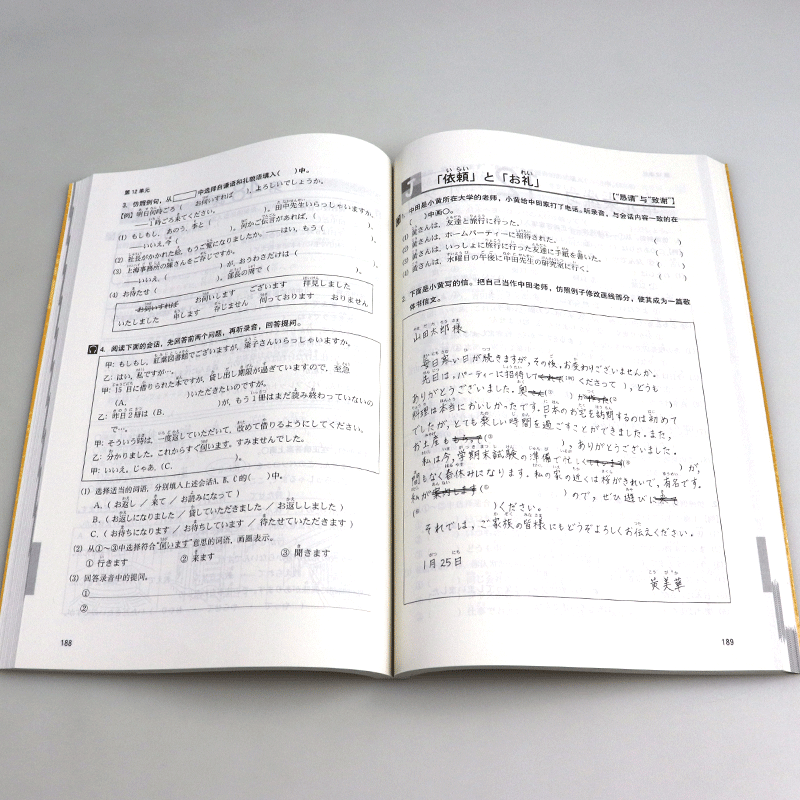 第12单元
3. 仿照例句，从 中选择自谦语和礼貌语填入( )中。
[例] 明日何時ごろ( お伺いすれば )、よろしいでしょうか。
——1時ごろ来てください。
(1) もしもし、あのう、李と( )。田中先生いらっしゃいますか。
——いいえ、今( )が、何かご伝言があれば、( )。
(2) 社長がかかれた絵、もうご覧になりましたか。——はい、もう( )。
(3) 上海事務所の陳さんをご存じですか。
——いいえ、( )が、おうわさだけは( )。
(4) お待たせ( )、課長の周で( )。
お伺いすれば お伺いします ございます 拝見しました
いたしました 申します 存じません 伺っております おりません
4. 阅读下面的会话，先回答前两个问题，再听录音，回答提问。
甲: もしもし、紅葉図書館でございますが、葉子さんいらっしゃいますか。
乙: はい、私ですが…。
甲: 15日に借りられた本ですが、貸し出し期限が過ぎていますので、至急
(A. )いただきたいのですが。
乙: 昨日2冊は(B. )が、もう1冊はまだ読み終わっていないの
で…。
甲: そういう時は一度返していただいて、改めて借りるようにしてください。
乙: 分かりました。これからすぐ伺います。すみませんでした。
甲: いいえ。じゃあ、(C. )。
(1) 选择适当的词语，分别填入上述会话A, B, C的( )中。
A. ( お返し / 来て / お読みになって )
B. ( お返しになりました / 貸していただきました / お返ししました )
C. ( お待ちになります / お待ちしています / 待たせていただきます )
(2) 从①～③中选择符合“伺います”意思的词语，画圈表示。
① 行きます ② 来ます ③ 聞きます
(3) 回答录音中的提问。
①
②
188
「依頼」と「お礼」
[“恳请”与“致谢”]
1. 中田是小黄所在大学的老师，小黄给中田家打了电话。听录音，与会话内容一致的在
( )中画○。
(1) 黄さんは、友達と旅行に行った。 ( )
(2) 黄さんは、ホームパーティーに招待された。 ( )
(3) 黄さんは、いっしょに旅行に行った友達に手紙を書いた。 ( )
(4) 黄さんは、水曜日の午後に中田先生の研究室に行く。 ( )
2. 下面是小黄写的信。把自己当作中田老师，仿照例子修改画线部分，使其成为一篇敬
体书信文。
山田太郎様
毎日寒い日が続きますが、その後、お変わりございませんか。
先日は、パーティーに招待してくれて([例] くださって )、どうも
ありがとうございました。奥さん(① )が作った(② )
料理は本当においしかったです。日本のお宅を訪問するのは初めて
でしたが、とても楽しい時間を過ごすことができました。また、
お土産ももらって(③ )、ありがとうございました。
私は今、学期末試験の準備で忙しくています(④ )が、
間もなく春休みになります。私の家の近くは桜がきれいで、有名です。
私が案内します(⑤ )ので、ぜひ遊びに来て
(⑥ )ください。
それでは、ご家族の皆様にもどうぞよろしくお伝えください。
1月25日
黄美華
189